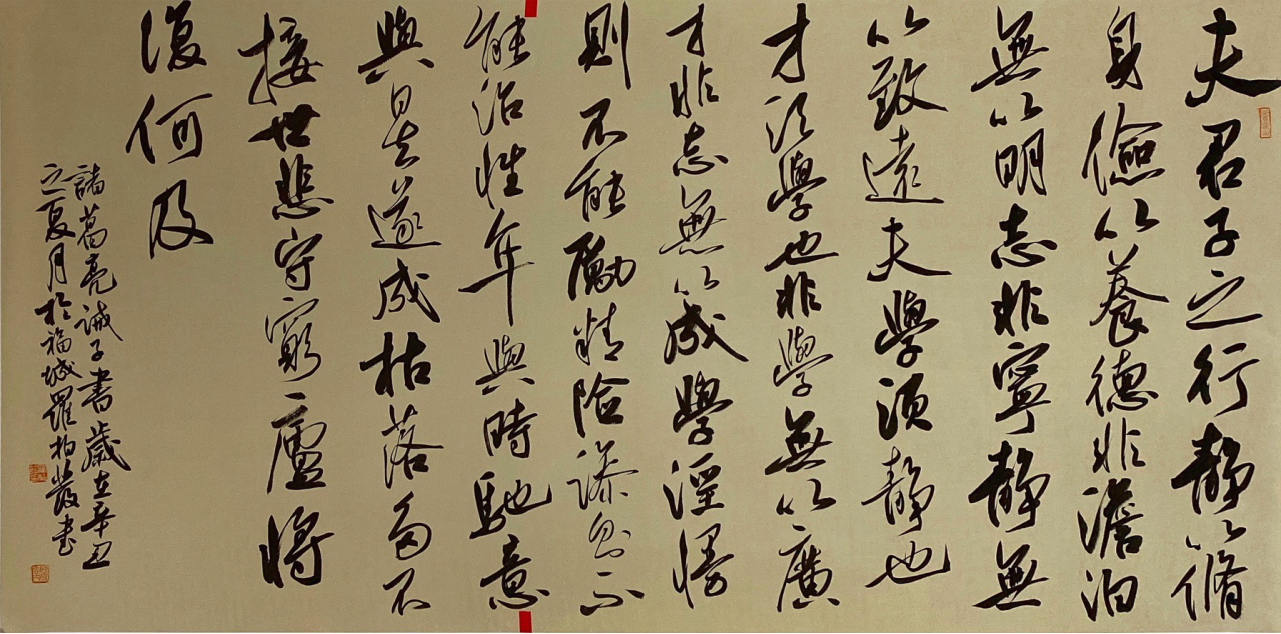 夫君子之行靜以脩
身儉以養德非澹泊
無以明志非寧靜無
以致遠夫學須靜也
才須學也非學無以廣
才非志無以成學淫慢
則不能勵精險躁則不
能治性年與時馳意
與日去遂成枯落多不
接世悲守窮廬將
復何及
諸葛亮誡子書歲在辛丑
之夏月於福城羅柏書